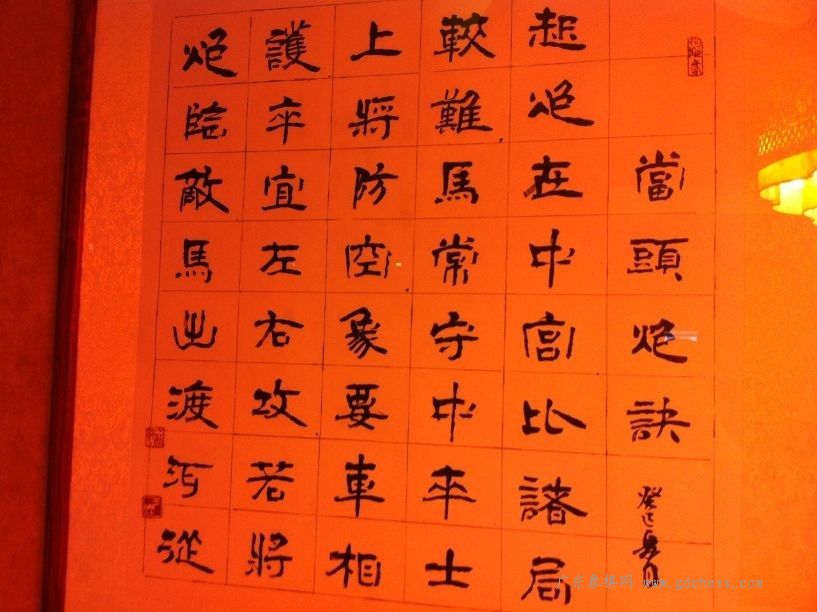 當頭炮訣
癸巳
起炮在中宮比諸局
較難馬常守中卒士
上將防空象要車相
護卒宜左右攻若將
炮臨敵馬出渡河從
广东象棋网 www.gdchess.com